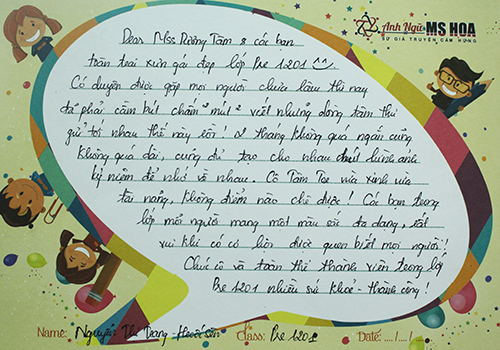 Anh Ngữ MS HOA
SỨ GIẢ TRUYỀN CẢM HỨNG
Dear Miss Tâm & các bạn
toàn trai xinh gái đẹp lớp Pre 1201 ^^.
Có duyên được gặp mọi người chưa lâu thì nay
đã phải cầm bút chấm "mút" viết những dòng tâm thư
gửi tới nhau thế này rồi! 2 tháng không quá ngắn cũng
không quá dài, cũng đủ tạo cho nhau chút hình ảnh
kỷ niệm để nhớ về nhau. Cô Tâm Toe vừa xinh vừa
tài năng, không điểm nào chê được! Các bạn trong
lớp mỗi người mang một màu sắc đa dạng, rất
vui khi có cơ hội được quen biết mọi người!
Chúc cô và toàn thể thành viên trong lớp
Pre 1201 nhiều sức khoẻ - thành công!
Name: Nguyễn Thị Trang Class: Pre 1201 Date: .../.../...